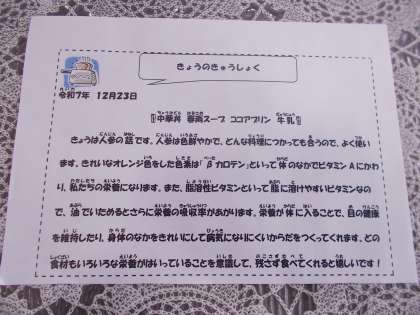 きょうのきゅうしょく
令和7年 12月23日
中華丼 春雨スープ ココアプリン 牛乳
きょうは人参の話です。人参は色鮮やかで、どんな料理につかっても合うので、よく使い
ます。きれいなオレンジ色をした色素は「βカロテン」といって体のなかでビタミンAにかわ
り、私たちの栄養になります。また、脂溶性ビタミンといって脂に溶けやすいビタミンなの
で、油でいためるとさらに栄養の吸収率があがります。栄養が体に入ることで、目の健康
を維持したり、身体のなかをきれいにして病気になりにくいからだをつくってくれます。どの
食材もいろいろな栄養がはいっていることを意識して、残さず食べてくれると嬉しいです！